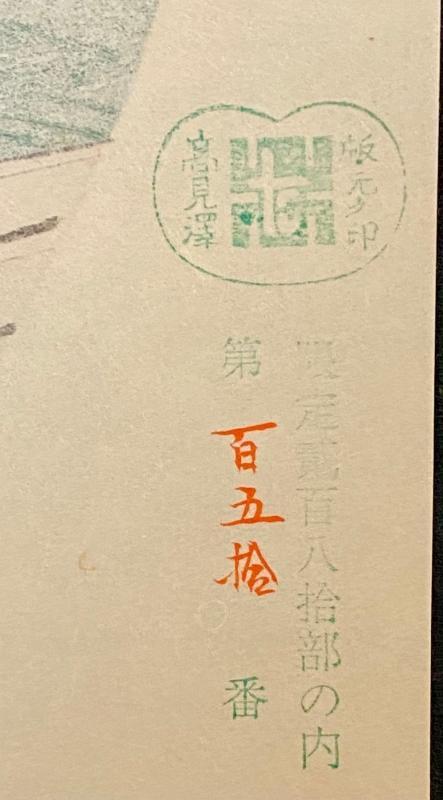 版元之印
高見澤
限定貳百八拾部の内
第百五拾番